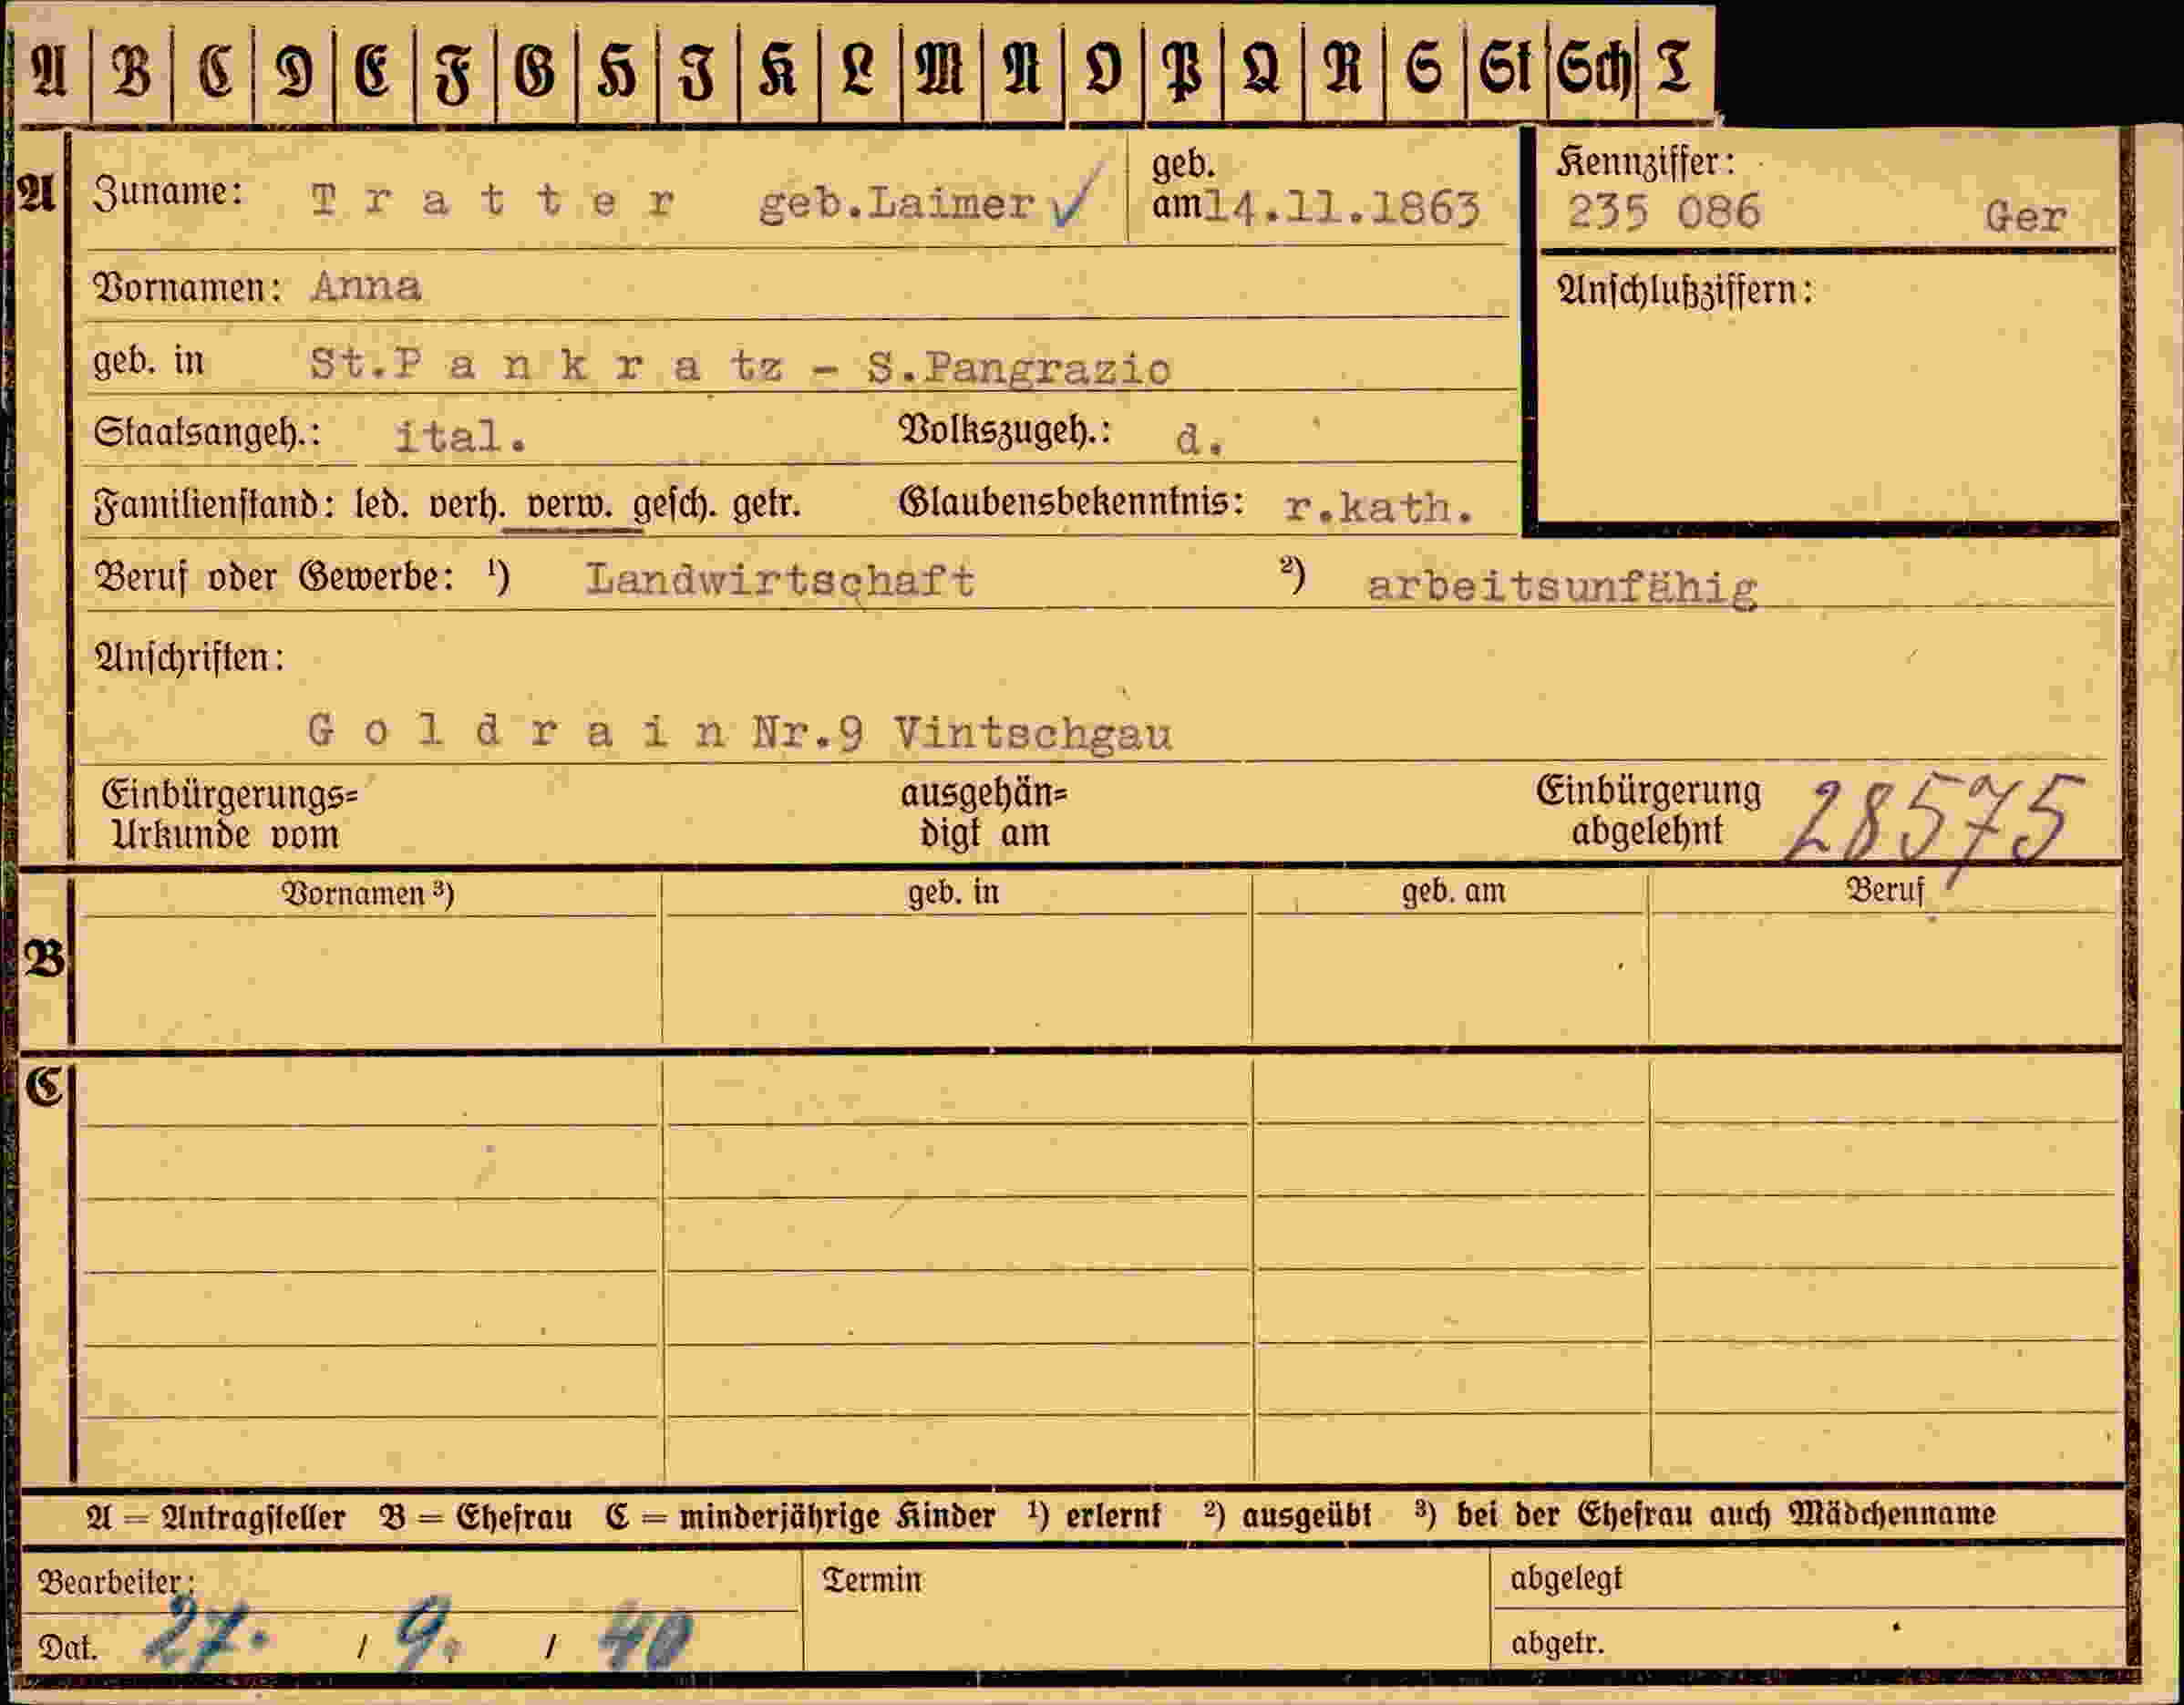 A B C D E F G H J K L M N O P Q R S St Sch T
A Zuname: T r a t t e r geb.Laimer ✓ geb. am 14.11.1863 Kennziffer: 235 086 Ger
Vornamen: Anna Anschlußziffern:
geb. in St.P a n k r a tz - S.Pangrazio
Staatsangeh.: ital. Volkszugeh.: d.
Familienstand: led. verh. verw. gesch. getr. Glaubensbekenntnis: r.kath.
Beruf oder Gewerbe: ¹) Landwirtschaft ²) arbeitsunfähig
Anschriften:
G o l d r a i n Nr.9 Vintschgau
Einbürgerungs= ausgehän= Einbürgerung 28575
Urkunde vom digt am abgelehnt
Vornamen ³) geb. in geb. am Beruf
B
C
A = Antragsteller B = Ehefrau C = minderjährige Kinder ¹) erlernt ²) ausgeübt ³) bei der Ehefrau auch Mädchenname
Bearbeiter: Termin abgelegt
Dat. 27. / 9. / 40 abgetr.